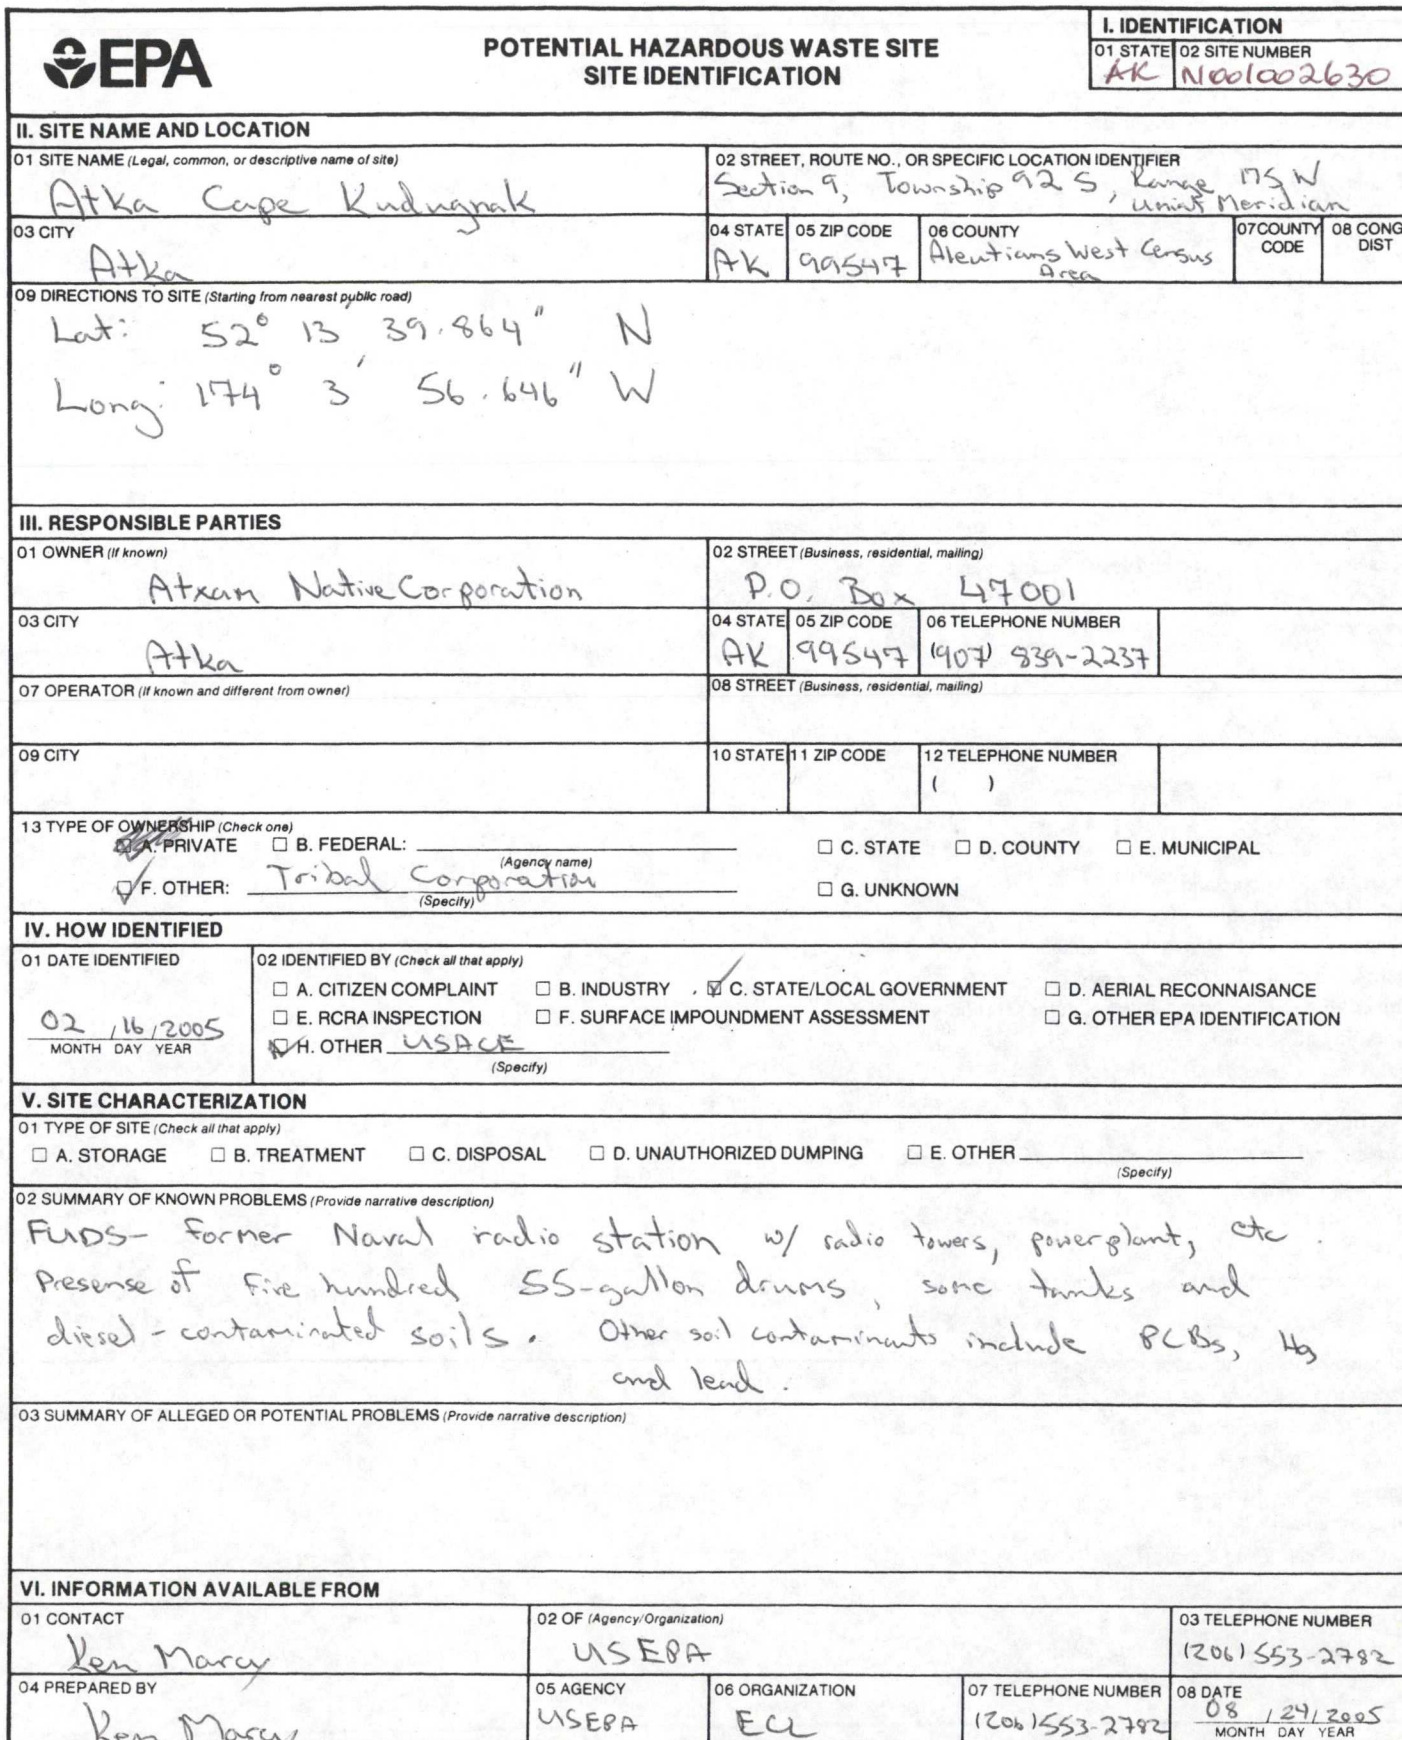 EPA
POTENTIAL HAZARDOUS WASTE SITE
SITE IDENTIFICATION
I. IDENTIFICATION
01 STATE 02 SITE NUMBER
AK N001002630
II. SITE NAME AND LOCATION
01 SITE NAME (Legal, common, or descriptive name of site)
Atka Cape Kudugnak
02 STREET, ROUTE NO., OR SPECIFIC LOCATION IDENTIFIER
Section 9, Township 92 S, Range 175 W
Umiat Meridian
03 CITY
Atka
04 STATE 05 ZIP CODE 06 COUNTY 07 COUNTY CODE 08 CONG DIST
AK 99547 Aleutians West Census
Area
09 DIRECTIONS TO SITE (Starting from nearest public road)
Lat: 52° 13 39.864" N
Long: 174° 3' 56.646" W
III. RESPONSIBLE PARTIES
01 OWNER (If known)
Atxam Native Corporation
02 STREET (Business, residential, mailing)
P.O. Box 47001
03 CITY
Atka
04 STATE 05 ZIP CODE 06 TELEPHONE NUMBER
AK 99547 (907) 839-2237
07 OPERATOR (If known and different from owner)
08 STREET (Business, residential, mailing)
09 CITY
10 STATE 11 ZIP CODE 12 TELEPHONE NUMBER
( )
13 TYPE OF OWNERSHIP (Check one)
A. PRIVATE B. FEDERAL: C. STATE D. COUNTY E. MUNICIPAL
(Agency name)
F. OTHER: Tribal Corporation G. UNKNOWN
(Specify)
IV. HOW IDENTIFIED
01 DATE IDENTIFIED
02 / 16 / 2005
MONTH DAY YEAR
02 IDENTIFIED BY (Check all that apply)
A. CITIZEN COMPLAINT B. INDUSTRY C. STATE/LOCAL GOVERNMENT D. AERIAL RECONNAISANCE
E. RCRA INSPECTION F. SURFACE IMPOUNDMENT ASSESSMENT G. OTHER EPA IDENTIFICATION
H. OTHER USACE
(Specify)
V. SITE CHARACTERIZATION
01 TYPE OF SITE (Check all that apply)
A. STORAGE B. TREATMENT C. DISPOSAL D. UNAUTHORIZED DUMPING E. OTHER
(Specify)
02 SUMMARY OF KNOWN PROBLEMS (Provide narrative description)
FUDS- Former Naval radio station w/ radio towers, powerplant, etc.
Presense of five hundred 55-gallon drums, some tanks and
diesel-contaminated soils. Other soil contaminants include PCBs, Hg
and lead.
03 SUMMARY OF ALLEGED OR POTENTIAL PROBLEMS (Provide narrative description)
VI. INFORMATION AVAILABLE FROM
01 CONTACT
Ken Marcy
02 OF (Agency/Organization)
USEPA
03 TELEPHONE NUMBER
(206) 553-2782
04 PREPARED BY
Ken Marcy
05 AGENCY
USEPA
06 ORGANIZATION
ECL
07 TELEPHONE NUMBER
(206) 553-2782
08 DATE
08 / 24 / 2005
MONTH DAY YEAR